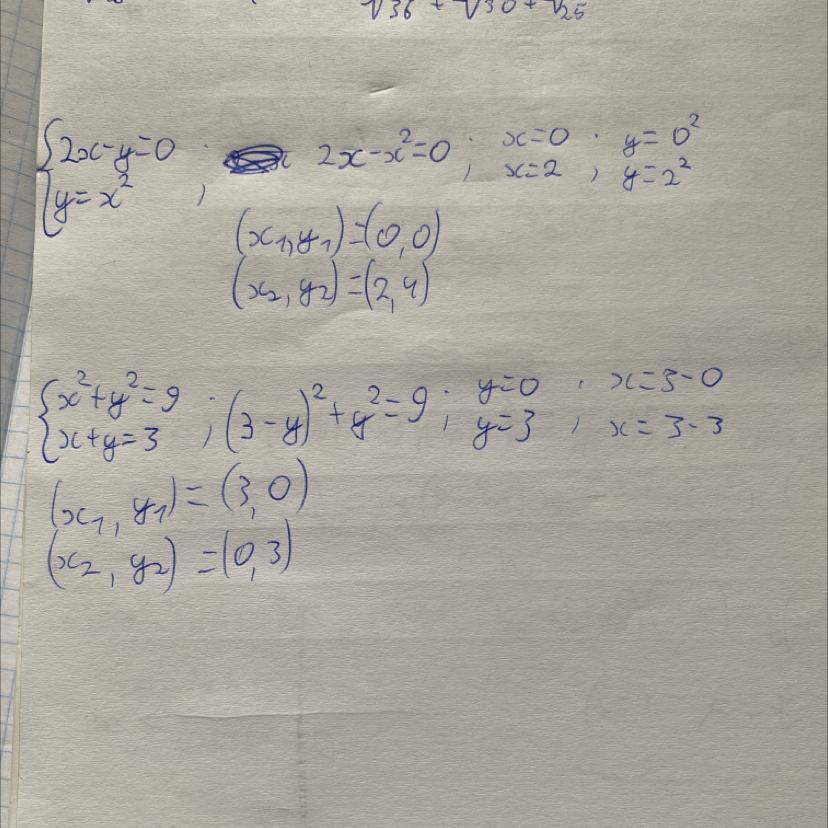 √36 + √30 + √25
{2x-y=0 ; 2x-x²=0 ; x=0 ; y=0²
{y=x² x=2 ; y=2²
(x₁,y₁)=(0,0)
(x₂,y₂)=(2,4)
{x²+y²=9 ; (3-y)²+y²=9 ; y=0 ; x=3-0
{x+y=3 y=3 ; x=3-3
(x₁,y₁)=(3,0)
(x₂,y₂)=(0,3)